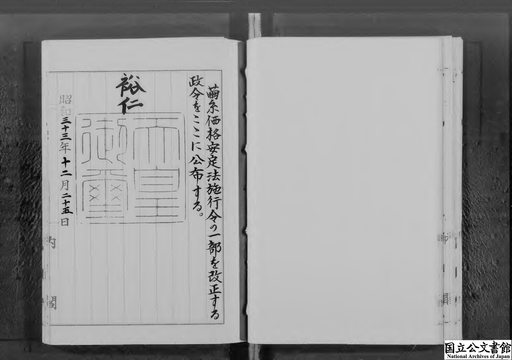 繭糸価格安定法施行令の一部を改正する
政令をここに公布する。
裕仁
天皇御璽
昭和三十三年十二月二十五日
内閣
国立公文書館
National Archives of Japan